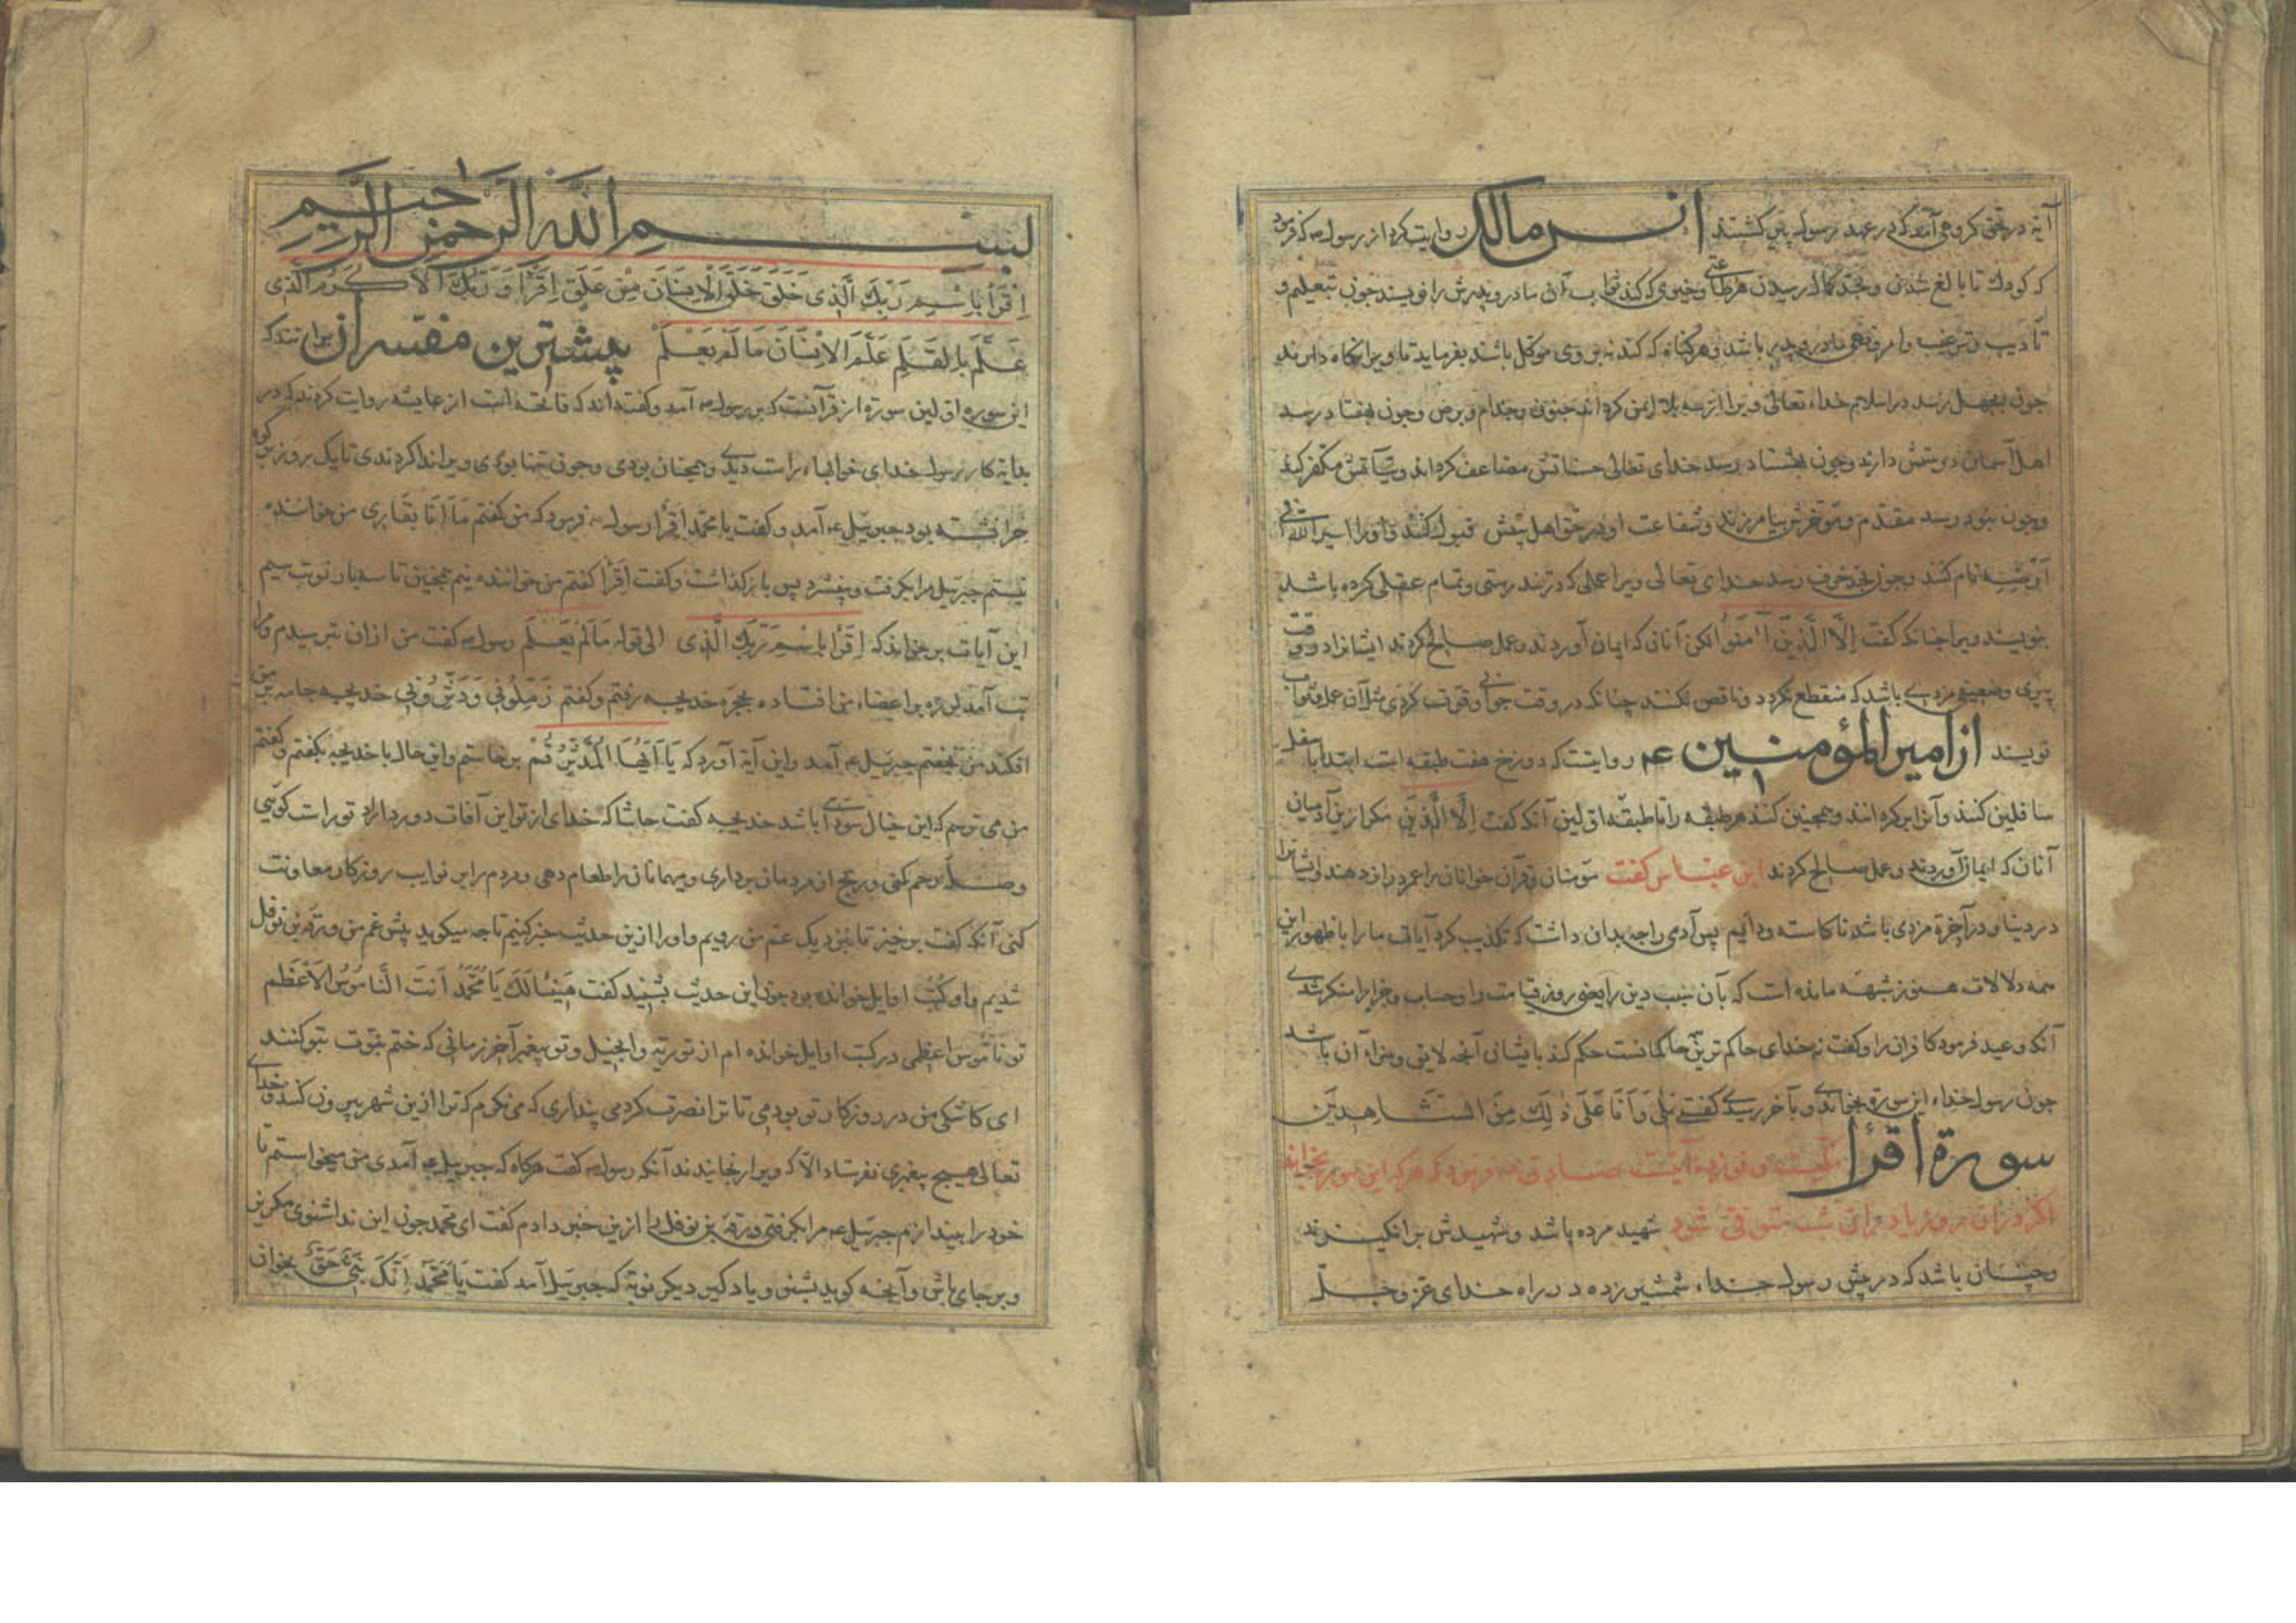 آیه در حق کروهی آمد که در عهد رسول پیر کشتند انس مالک روایت کرد از رسول صه که فرمود
که کودک تا بالغ شدن و بحد کمال رسیدن هر طاعتی و خیری که کند ثواب آن مادر و پدرش را نویسند چون تبعلیم و
تأدیب و ترغیب و امر و نهی مادر و پدر باشد و هر کناه که کند نه بر وی موکل باشد بفرماید تا ویرا نکاه دارند
چون بچهل رسد در اسلام خداء تعالی ویرا از سه بلا ایمن کرداند جنون و جذام و برص و چون بهفتاد رسد
اهل آسمان دوستش دارند و چون بهشتاد رسد خدای تعالی حسناتش مضاعف کرداند و سیآتش مکفر کند
و چون بنود رسد مقدم و مؤخرش بیامرزند و شفاعت او در حق اهل بیتش قبول کنند و او را اسیر الله فی
ارضه نام کنند و چون بحد خرف رسد خدای تعالی ویرا عملی که در تندرستی و تمام عقلی کرده باشد
بنویسند ویرا چنانکه کفت اِلَّا الَّذِینَ آمَنُوا الکن آنانی که ایمان آوردند و عمل صالح کردند ایشانرا در وقت
پیری و ضعیفی مزدی باشد که منقطع نکردد و ناقص نکنند چنانکه در وقت جوانی و قوت کردی مثل آن عمل ثواب
نویسند از امیر المؤمنین عم روایتست که دوزخ هفت طبقه است ابتدا باسفل
سافلین کنند و آنرا پر کردانند و همچنین کنند هر طبقه را تا طبقهٔ اولین آنکه کفت اِلَّا الَّذِینَ مکر ازین آدمیان
آنان که ایمان آوردند و عمل صالح کردند ابن عباس کفت مؤمنان و قرآن خوانان را عمر دراز دهند و ایشانرا
در دنیا و در آخرة مزدی باشد ناکاسته و دایم پس آدمی را چه بدان داشت که تکذیب کرد آیات ما را با ظهور این
همه دلالات هنوز شبهه مانده است که بآن سبب دین را یعنی روز قیامت را و حساب و جزا را منکر شدی
آنکه وعید فرمود کافران را و کفت نه خدای حاکم ترین حاکمانست حکم کند بایشان آنچه لایق و سزاء آن باشد
چون رسول خداء این سورة بخواندی و بآخر رسیدی کفتی بَلَی وَ اَنَا عَلَی ذٰلِکَ مِنَ الشَّاهِدِینَ
سورة اقرأ مکیست و نوزده آیتست صادق عه فرمود که هر که این سوره بخواند
اکر در آن روز یا در آن شب متوفی شود شهید مرده باشد و شهیدش برانکیزند
و چنان باشد که در پیش رسول خداء شمشیر زده در راه خدای عز و جل
بسم الله الرحمن الرحیم
اِقْرَأْ بِاسْمِ رَبِّکَ الَّذِی خَلَقَ خَلَقَ الْاِنْسَانَ مِنْ عَلَقٍ اِقْرَأْ وَ رَبُّکَ الْاَکْرَمُ الَّذِی
عَلَّمَ بِالْقَلَمِ عَلَّمَ الْاِنْسَانَ مَا لَمْ یَعْلَمْ پیشترین مفسران برانند که
این سوره اولین سورة از قرآنست که بر رسول صه آمد و کفته اند که فاتحه است از عایشه روایت کردند که در
بدایة کار رسول خدای خوابهاء راست دیدی و همچنان بودی و چون تنها بودی ویرا ندا کردندی تا یک روز بر کوه
حرا نشسته بود جبرییل عه آمد و کفت یا محمّد اِقْرَأْ رسول صه فرمود که من کفتم مَا اَنَا بِقَارِی من خواننده
نیستم جبرییل مرا بکرفت و بیفشرد پس باز کذاشت و کفت اِقْرَأْ کفتم من خواننده نیم همچنین تا سه بار نوبت سیم
این آیات بر خواند که اِقْرَأْ بِاسْمِ رَبِّکَ الَّذِی الی قوله مَا لَمْ یَعْلَمْ رسول صه کفت من از آن بترسیدم و مرا
تب آمد لرزه بر اعضاء من افتاده بحجره خدیجه رفتم و کفتم زَمِّلُونِی وَ دَثِّرُونِی خدیجه جامه بر من
افکند من بخفتم جبرییل عه آمد و این آیة آورد که یَا اَیُّهَا الْمُدَّثِّرُ قُمْ برخاستم و این حال با خدیجه بکفتم و کفتم
من می ترسم که این خیال سودایی باشد خدیجه کفت حاشا که خدای از تو این آفات دور دارد تو راست کویی
و صله رحم کنی و رنج از مردمان برداری و میهمانان را طعام دهی و مردم را بر نوایب روزکار معاونت
کنی آنکه کفت برخیز تا بنزدیک عم من رویم و او را ازین حدیث خبر کنیم تا چه میکوید پیش عم من ورقه بن نوفل
شدیم و او کُتُب اوایل خوانده بود چون این حدیث بشنید کفت هَنِیئًا لَکَ یَا مُحَمَّدُ اَنْتَ النَّامُوسُ الْاَعْظَم
تو ناموس اعظمی در کتب اوایل خوانده ام از توریة و انجیل و تو پیغمبر آخر زمانی که ختم نبوّت بتو کنند
ای کاشکی من در روزکار تو بودمی تا ترا نصرت کردمی پنداری که می نکرم که ترا ازین شهر بیرون کنند و خدای
تعالی هیچ پیغمبری نفرستاد الّا که ویرا رنجانیدند آنکه رسول صه کفت هرکاه که جبرییل عه آمدی من میخواستم تا
خود را بیندازم جبرییل عه مرا بکرفتی ورقه بن نوفل را ازین خبر دادم کفت ای محمد چون این ندا شنوی مکریز
و بر جای باش و آنچه کوید بشنو و یاد کیر دیکر نوبة که جبرییل آمد کفت یَا مُحَمَّد اِنَّکَ نَبِیٌّ حَقٌّ بخوان